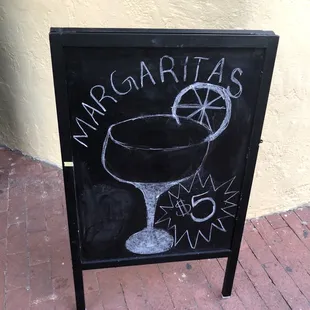 MARGARITAS
$5